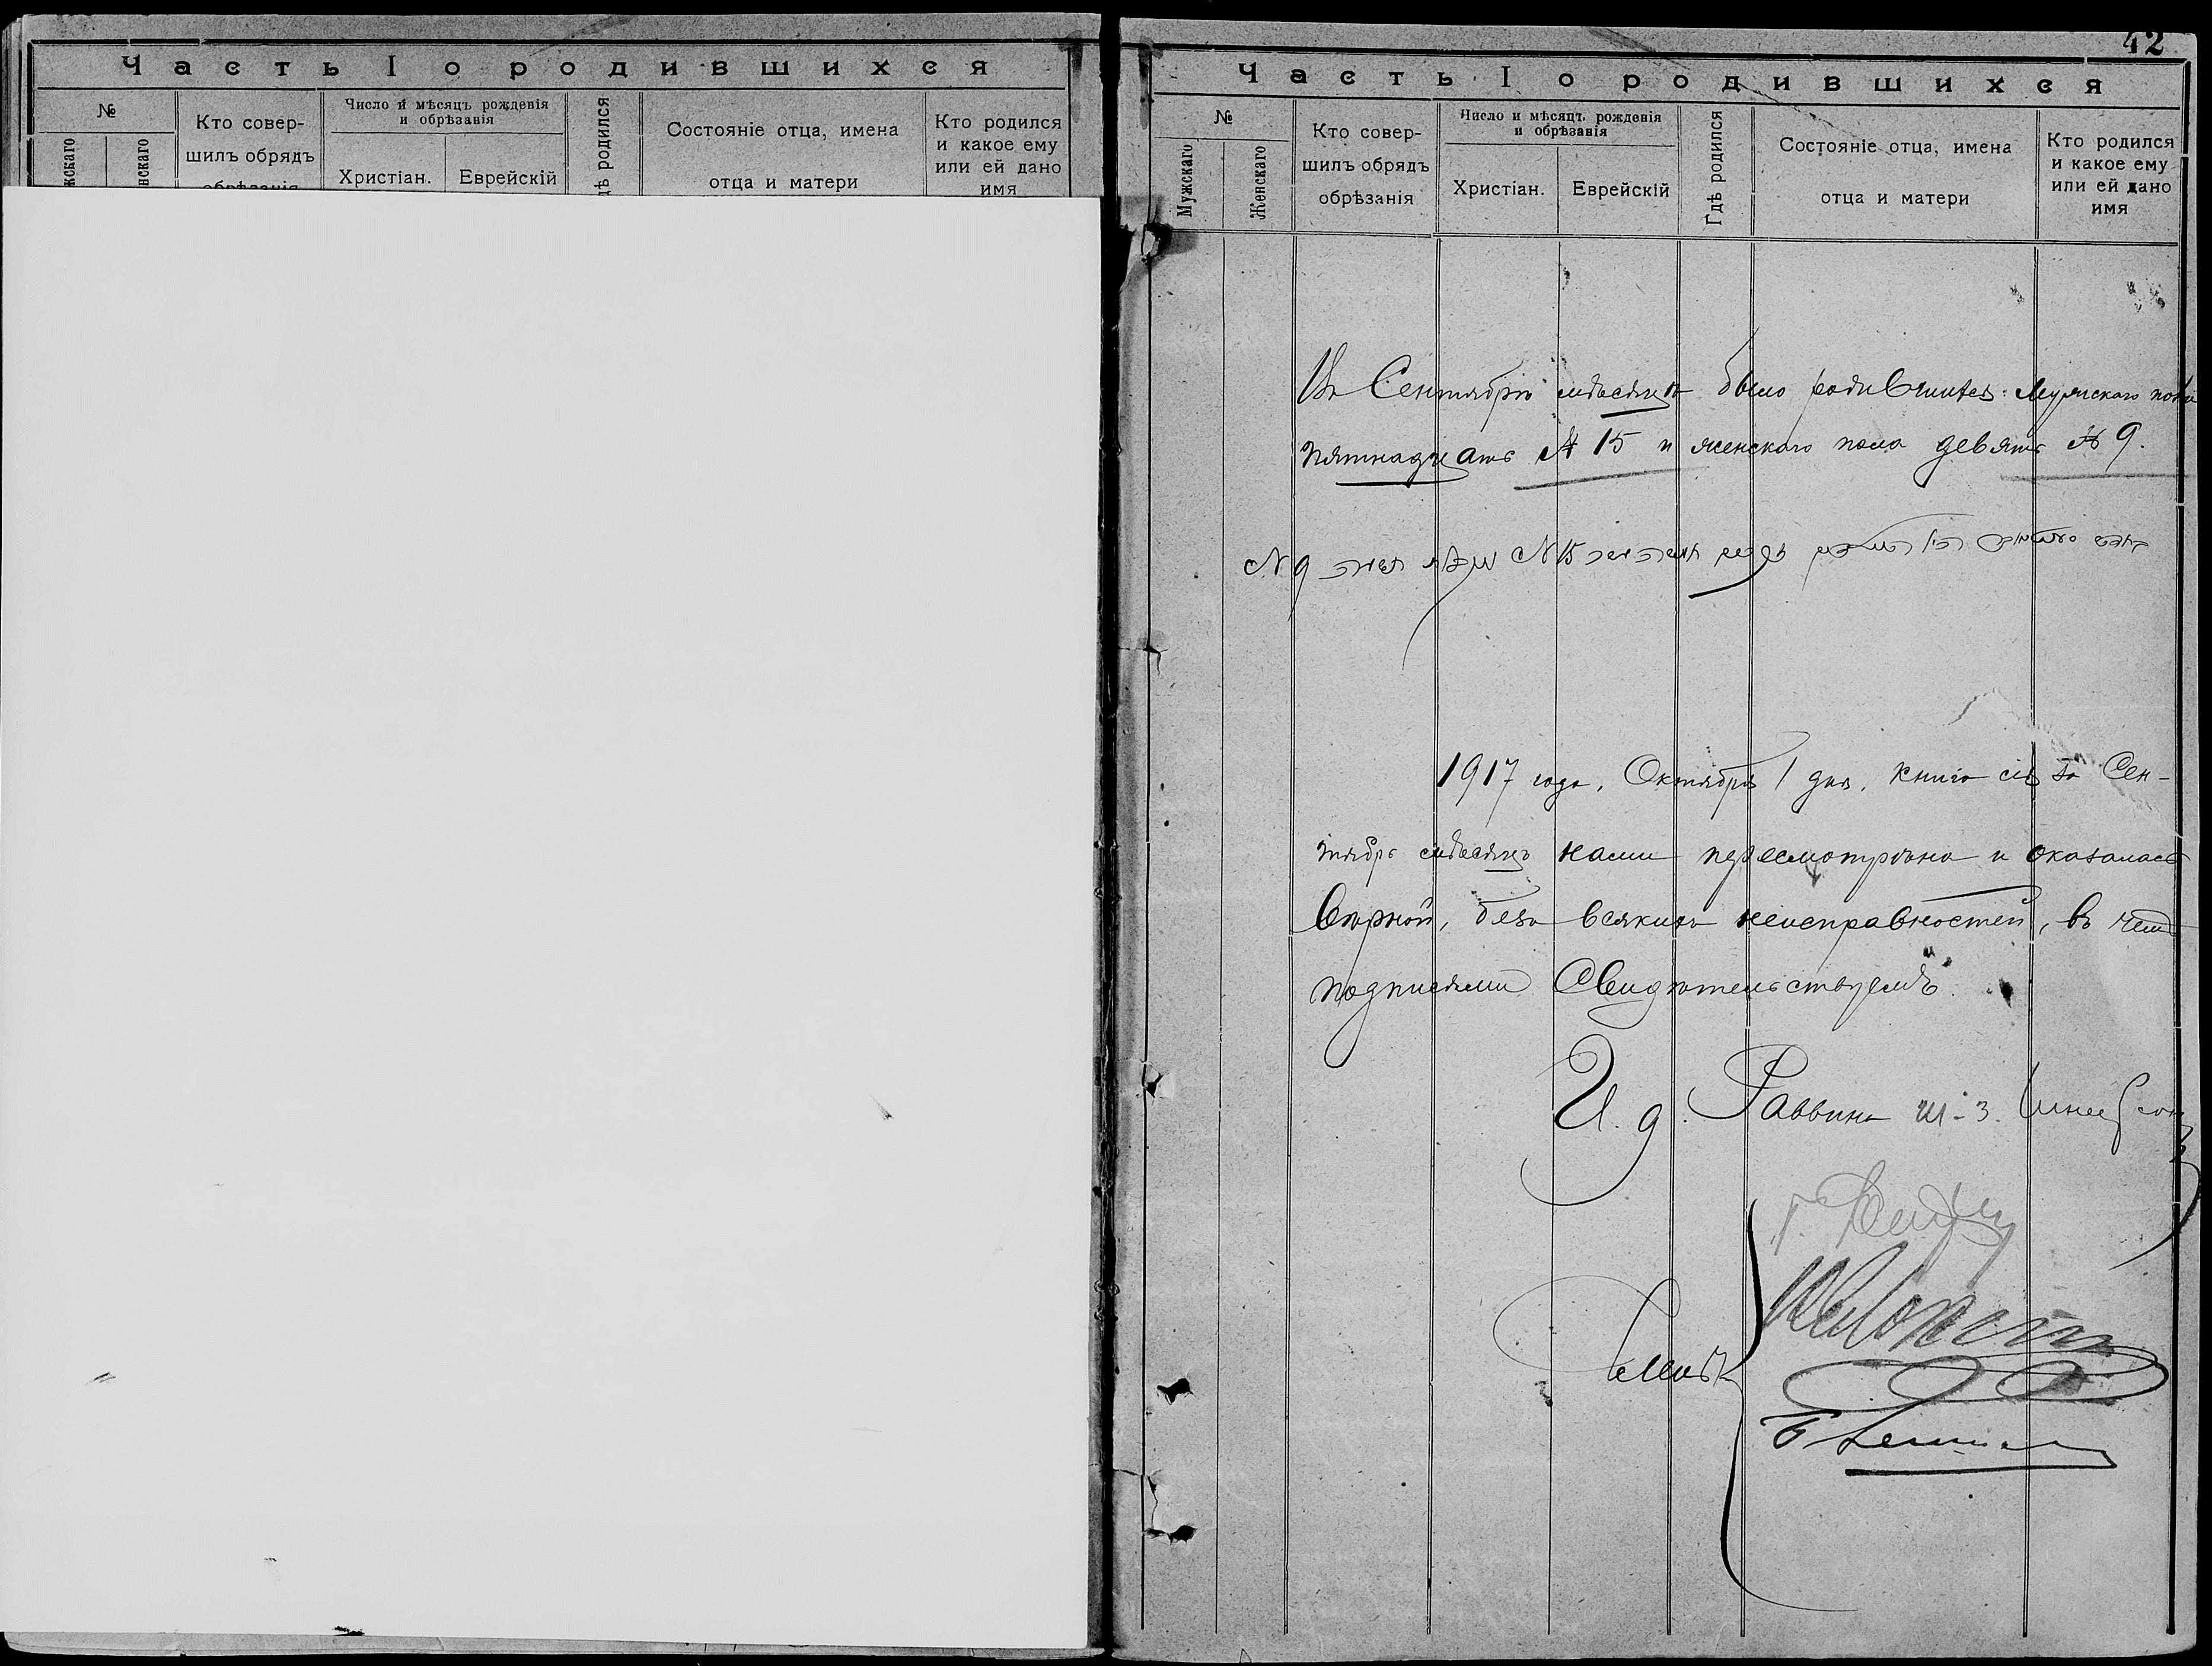 Часть I о родившихся
№
Кто совер-
шилъ обрядъ
Число и мѣсяцъ рожденія
и обрѣзанія
Христіан.
Еврейскій
Состояніе отца, имена
отца и матери
Кто родился
и какое ему
или ей дано
имя
42
Часть I о родившихся
№
Мужскаго
Женскаго
Кто совер-
шилъ обрядъ
обрѣзанія
Число и мѣсяцъ рожденія
и обрѣзанія
Христіан.
Еврейскій
Гдѣ родился
Состояніе отца, имена
отца и матери
Кто родился
и какое ему
или ей дано
имя
Въ Сентябрѣ мѣсяцѣ было родившихся: Мужскаго пола
пятнадцать № 15 и женскаго пола девять № 9.
№ 15 № 9
1917 года, Октября 1 дня, книга сія за Сен-
тябрь мѣсяцъ нами пересмотрѣна и оказалась
вѣрной, безъ всякихъ неисправностей, въ чемъ
подписями Свидѣтельствуемъ.
И. д. Раввина Ш-З. Шнеерсон